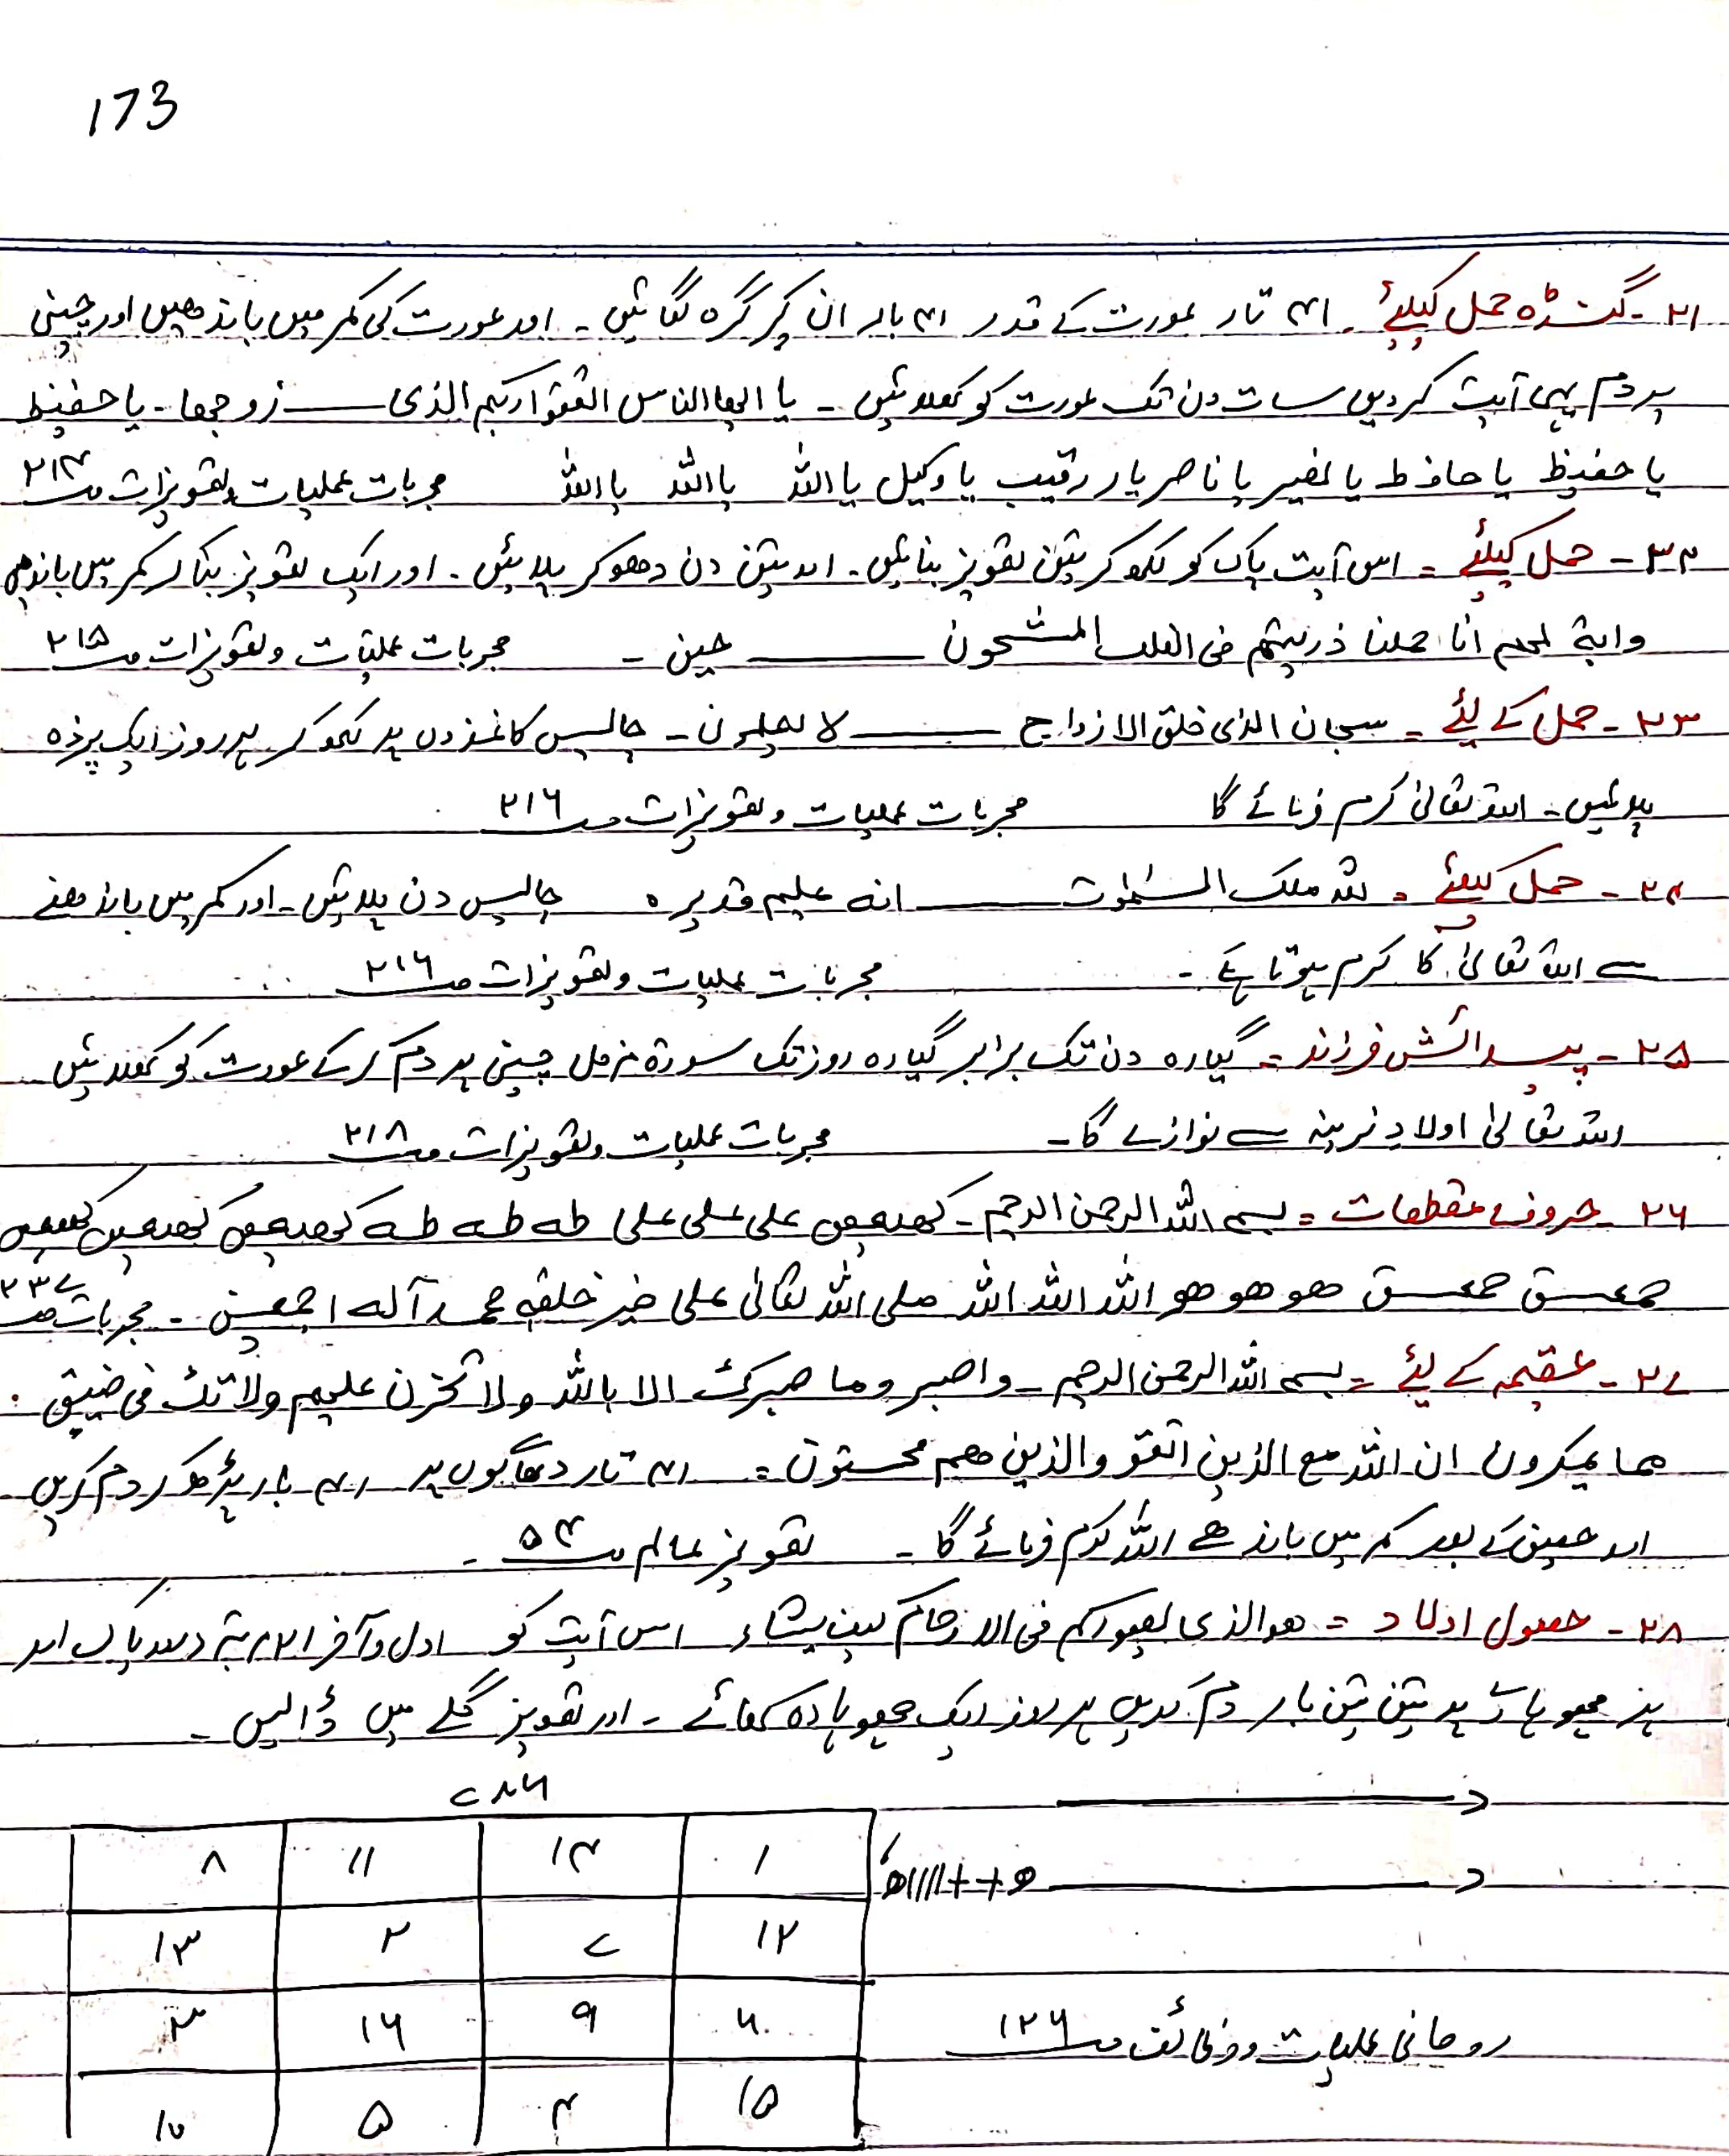 173
۲۱۔ گنڈہ حمل کیلئے ۔ ۴۱ تار عورت کے قد در ۴۱ بار ان پر گرہ لگائیں ۔ اور عورت کی کمر میں باندھیں اور چینی
پر دم یہی آیت کر دیں سات دن تک عورت کو کھلائیں ۔ یا ایھا الناس اتقوا ربکم الذی ——— زوجھا ۔ یا حفیظ
یا حفیظ یا حافظ یا نصیر یا ناصر یا رقیب یا وکیل یا اللہ یا اللہ یا اللہ مجربات عملیات و تعویزات صـ ۲۱۴
۲۲ ۔ حمل کیلئے ۔ اس آیت پاک کو لکھ کر تین تعویز بنائیں ۔ اور تین دن دھو کر پلائیں ۔ اور ایک تعویز بنا کر کمر میں باندھیں
وایۃ لھم انا حملنا ذریتھم فی الفلک المشحون ——— حین ۔ مجربات عملیات و تعویزات صـ ۲۱۵
۲۳ ۔ حمل کے لئے ۔ سبحان الذی خلق الازواج ——— لا یعلمون ۔ چالیس کاغذوں پر لکھ کر ہر روز ایک پرزہ
پلائیں ۔ اللہ تعالیٰ کرم فرمائے گا مجربات عملیات و تعویزات صـ ۲۱۶
۲۴ ۔ حمل کیلئے ۔ للہ ملک السمٰوت ——— انہ علیم قدیر ہ چالیس دن پلائیں ۔ اور کمر میں باندھنے
سے اللہ تعالیٰ کا کرم ہوتا ہے ۔ مجربات عملیات و تعویزات صـ ۲۱۶
۲۵ ۔ پیدائش فرزند = گیارہ دن تک برابر گیارہ روز تک سورۃ مزمل چینی پر دم کر کے عورت کو کھلائیں
اللہ تعالیٰ اولادِ نرینہ سے نوازے گا ۔ مجربات عملیات و تعویزات صـ ۲۱۸
۲۶ ۔ حروف مقطعات = بسم اللہ الرحمن الرحیم ۔ کھیعص علی علی علی طہ طہ طہ کھیعص کھیعص کھیعص
حمعسق حمعسق ھو ھو ھو اللہ اللہ اللہ صلی اللہ تعالیٰ علی خیر خلقہ محمد آلہ اجمعین ۔ مجربات صـ ۲۳۷
۲۷ ۔ عقیمہ کے لئے = بسم اللہ الرحمن الرحیم ۔ واصبر وما صبرک الا باللہ ولا تحزن علیھم ولا تک فی ضیق
مما یمکرون ان اللہ مع الذین اتقو والذین ھم محسنون = ۴۱ تار دھاگوں پر ۴۱ بار پڑھ کر دم کریں
اور حیض کے بعد کمر میں باندھے اللہ کرم فرمائے گا ۔ تعویز عالم صـ ۵۴ ۔
۲۸ ۔ حصول اولاد = ھو الذی یصورکم فی الارحام کیف یشاء اس آیت کو اول و آخر ۲۱ مرتبہ درود پاک اور
ہر چھوہارے پر تین تین بار دم کریں ہر روز ایک چھوہارہ کھائے ۔ اور تعویز گلے میں ڈالیں ۔
۷۸۶
۸ ۱۱ ۱۴ ۱
۱۳ ۲ ۷ ۱۲
۳ ۱۶ ۹ ۶
۱۰ ۵ ۴ ۱۵
روحانی عملیات و وظائف صـ ۱۲۶